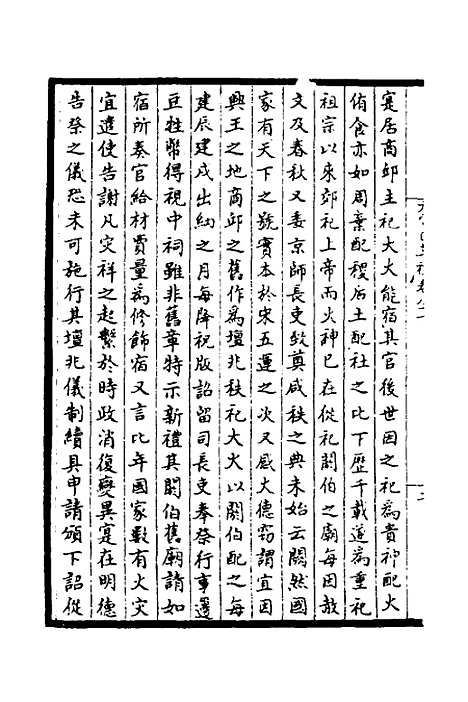 寔居商邱主祀大火能宿其官後世因之祀為貴神配火
侑食亦如周棄配稷后土配社之比下歷千載遂為重祀
祖宗以來郊祀上帝而火神已在從祀閼伯之廟每因赦
文及春秋又委京師長吏致奠咸秩之典未始云闕然國
家有天下之號實本於宋五運之次又感火德竊謂宜因
興王之地商邱之舊作為壇兆秩祀大火以閼伯配之每
建辰建戌出納之月每降祝版詔留司長吏奉祭行事籩
豆牲幣得視中祠雖非舊章特示新禮其閼伯舊廟請如
宿所奏官給材費量為修飾宿又言比年國家數有火災
宜遣使告謝凡災祥之起繫於時政消復變異寔在明德
告祭之儀恐未可施行其壇兆儀制續具申請頒下詔從